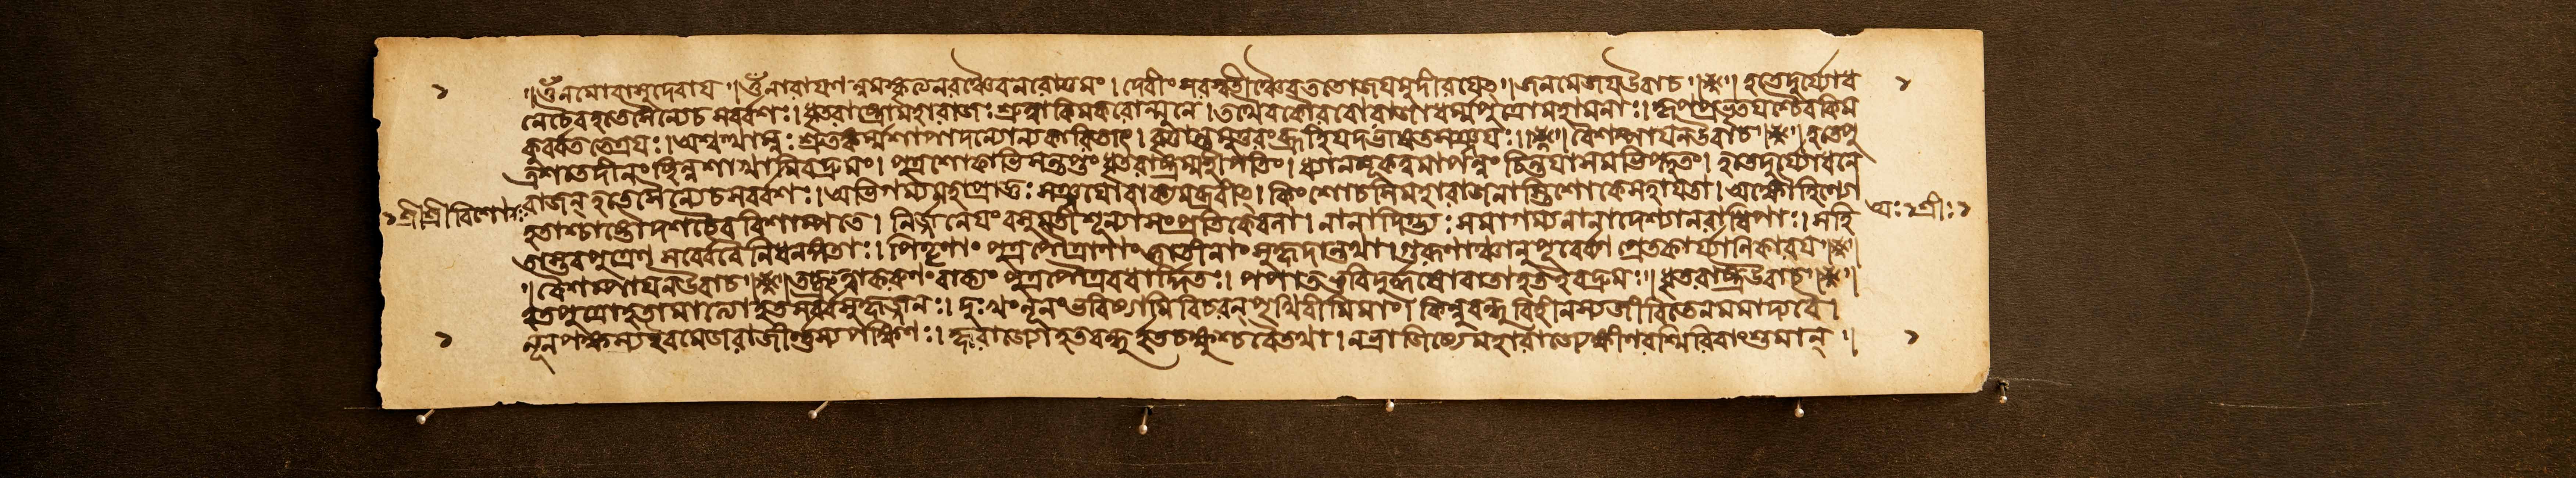 ॥ওঁনমোবাসুদেবায়॥ওঁনারায়ণং নমস্কৃত্যনরঞ্চৈবনরোত্তমং। দেবীংসরস্বতীঞ্চৈবততোজয়মুদীরয়েৎ॥জনমেজয়উবাচ॥হতেদুর্য্যোধ
নেচৈবহতেসৈন্যেচসর্ব্বশঃ। ধৃতরাষ্ট্রোমহারাজঃশ্রুত্বাকিমকরোন্মুনে। তথৈবকৌরবোরাজাধর্ম্মপুত্রোমহামনাঃ। কৃপপ্রভৃতয়শ্চৈবকিম
কুর্ব্বততেত্রয়ঃ। অশ্বত্থাম্নঃশ্রুতংকর্ম্মশাপাদন্যোন্যকারিতাৎ। বৃত্তান্তমুত্তরংব্রূহিযদভাষতসঞ্জয়ঃ॥বৈশম্পায়নউবাচ॥হতেপু
ত্রশতেদীনংছিন্নশাখমিবদ্রুমং। পুত্রশোকাভিসন্তপ্তংধৃতরাষ্ট্রম্মহীপতিং। ধ্যানমূকত্বমাপন্নং চিন্তয়াসমভিপ্লুতং। হতেদুর্য্যোধনে
রাজন্ হতেসৈন্যেচসর্ব্বশঃ। অভিগম্যমহাপ্রাজ্ঞঃসঞ্জয়োবাক্যমব্রবীৎ। কিংশোচসিমহারাজনাস্তিশোকেসহায়তা। অক্ষৌহিণ্যো
হতাশ্চাষ্টৌদশচৈববিশাম্পতে। নির্জ্জনেয়ংবসুমতীশূন্যাসংপ্রতিকেবলা। নানাদিগ্ভ্যঃসমাগম্যনানাদেশ্যানরাধিপাঃ। সহি
তাস্তবপুত্রেণ সর্ব্বেবৈনিধনঙ্গতাঃ। পিতৄণাং পুত্রপৌত্রাণাংজ্ঞাতীনাংসুহৃদান্তথা। গুরূণাঞ্চানুপূর্ব্বেণ প্রেতকার্য্যাণিকারয়॥
॥বৈশম্পায়নউবাচ॥তচ্ছ্রুত্বাকরুণংবাক্যং পুত্রপৌত্রবধার্দ্দিতঃ। পপাতভুবিদুর্দ্ধর্ষোবাতাহতইবদ্রুমঃ॥ধৃতরাষ্ট্রউবাচ॥
হতপুত্রোহতামাত্যোহতসর্ব্বসুহৃজ্জনঃ। দুঃখংনূনংভবিষ্যামিবিচরন্ পৃথিবীমিমাং। কিন্নুবন্ধুবিহীনস্যজীবিতেনমমাদ্যবৈ।
লূনপক্ষস্যইবমেজরাজীর্ণস্যপক্ষিণঃ। হৃতরাজ্যোহতবন্ধুর্হতচক্ষুশ্চবৈতথা। নভ্রাজিষ্যেমহারাজক্ষীণরশ্মিরিবাংশুমান্॥
শ্রীশ্রীবিশোকঃ
শ্রীঃ